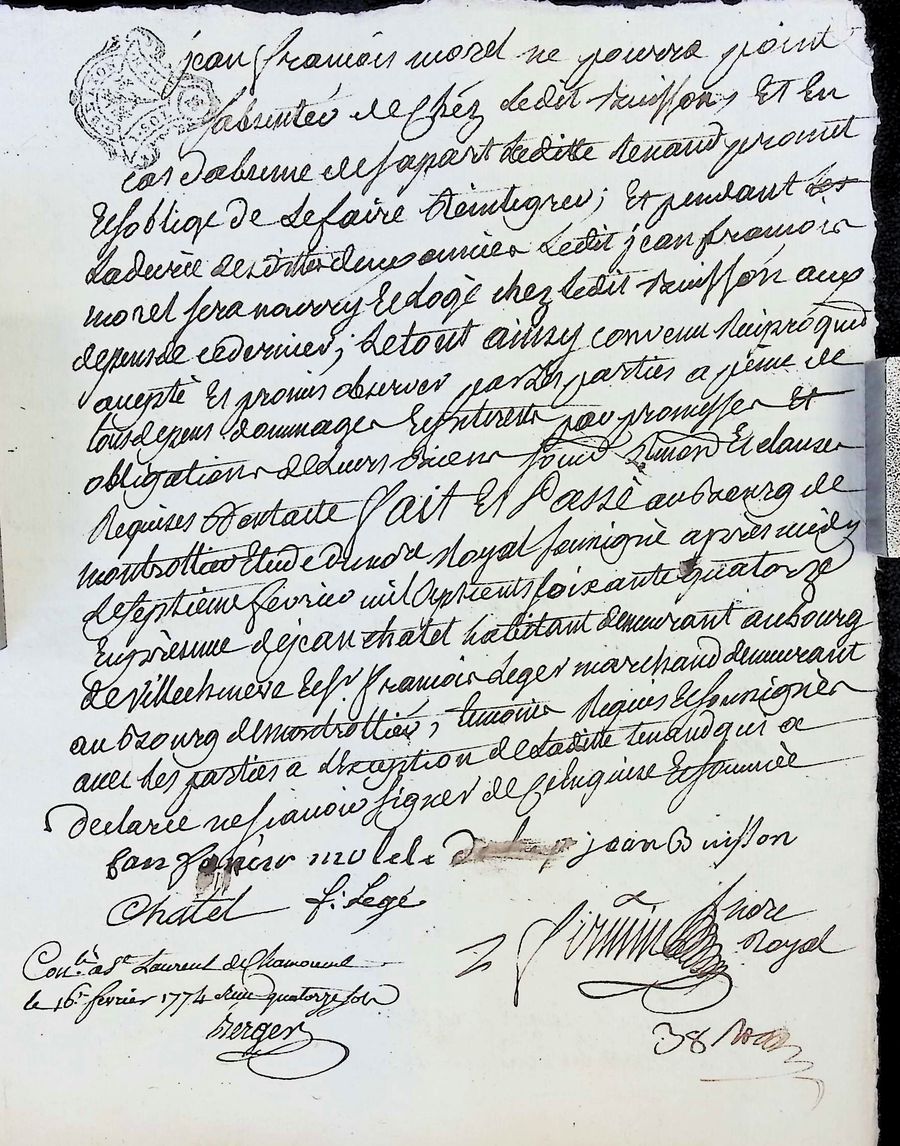 jean françois morel ne pourra point
s'absenter de chéz ledit Buisson, Et En
cas d'absence de sa part laditte Renaud promet
Et s'oblige de le faire Réintegrer; Et pendant
la durée desdittes deux années ledit jean françois
morel sera nourry Et logé chez ledit Buisson aux
depens de ce dernier; Le tout ainsy convenu
accepté Et promis observer par les parties a peine de
tous depens dommages Et interests par promesses Et
obligations de leurs Biens soum renon Et clauses
Requises Dont acte fait Et Passé au Bourg de
montrottier Etude du nore Royal soussigné après midy
le septieme fevrier mil sept cents soixante quatorze
En presence de jean chatel habitant demeurant au bourg
de Villecheneve Et sr françois Leger marchand demeurant
au Bourg de montrottier, temoins Requis Et soussignés
avec les parties a l'exception de laditte Renaud qui a
declaré ne sçavoir signer de ce Enquise Et sommée
jean Buisson
Chatel f. Legé
nore
Royal
Con.lé a St Laurent de Chamousset
le 16e fevrier 1774 quatorze sols
Berger
38